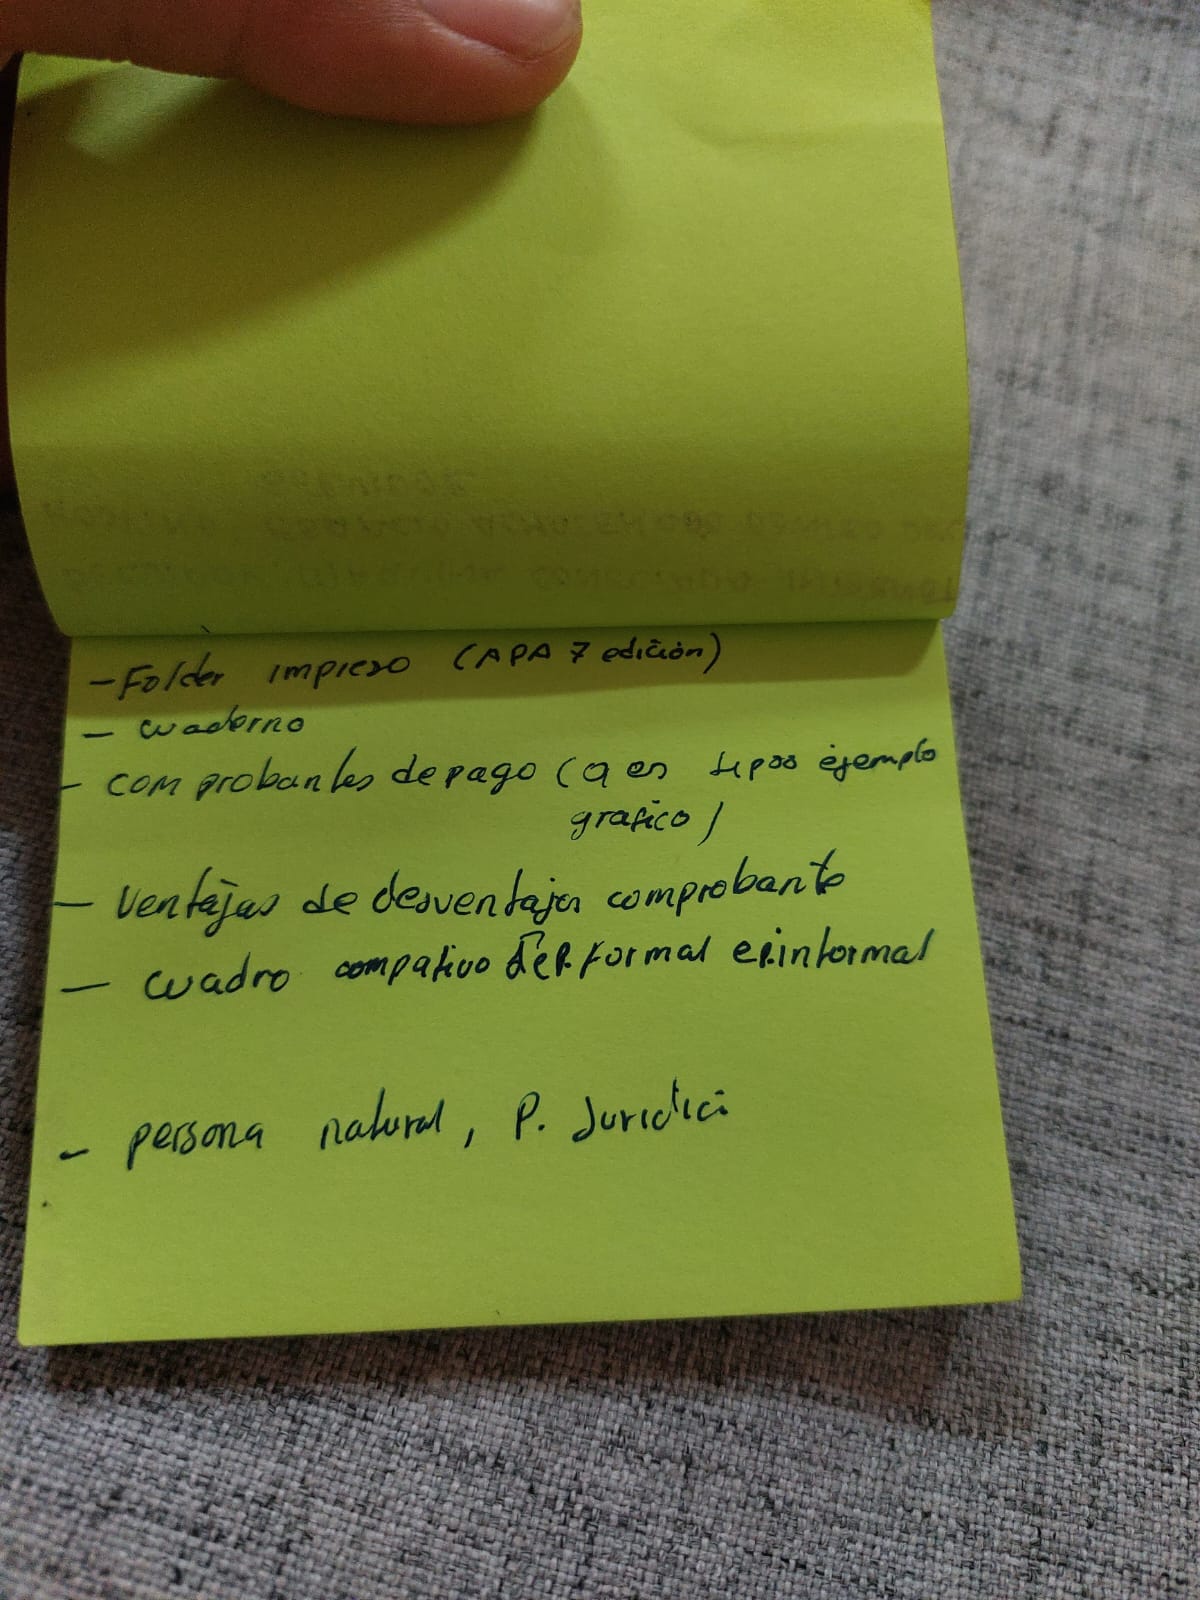 - Folder impreso (APA 7 edición)
- cuaderno
- comprobantes de pago (q es tipos ejemplo
grafico)
- Ventajas de desventajas comprobante
- cuadro compativo de E.P. formal e E.P. informal
- persona natural, P. Juridici